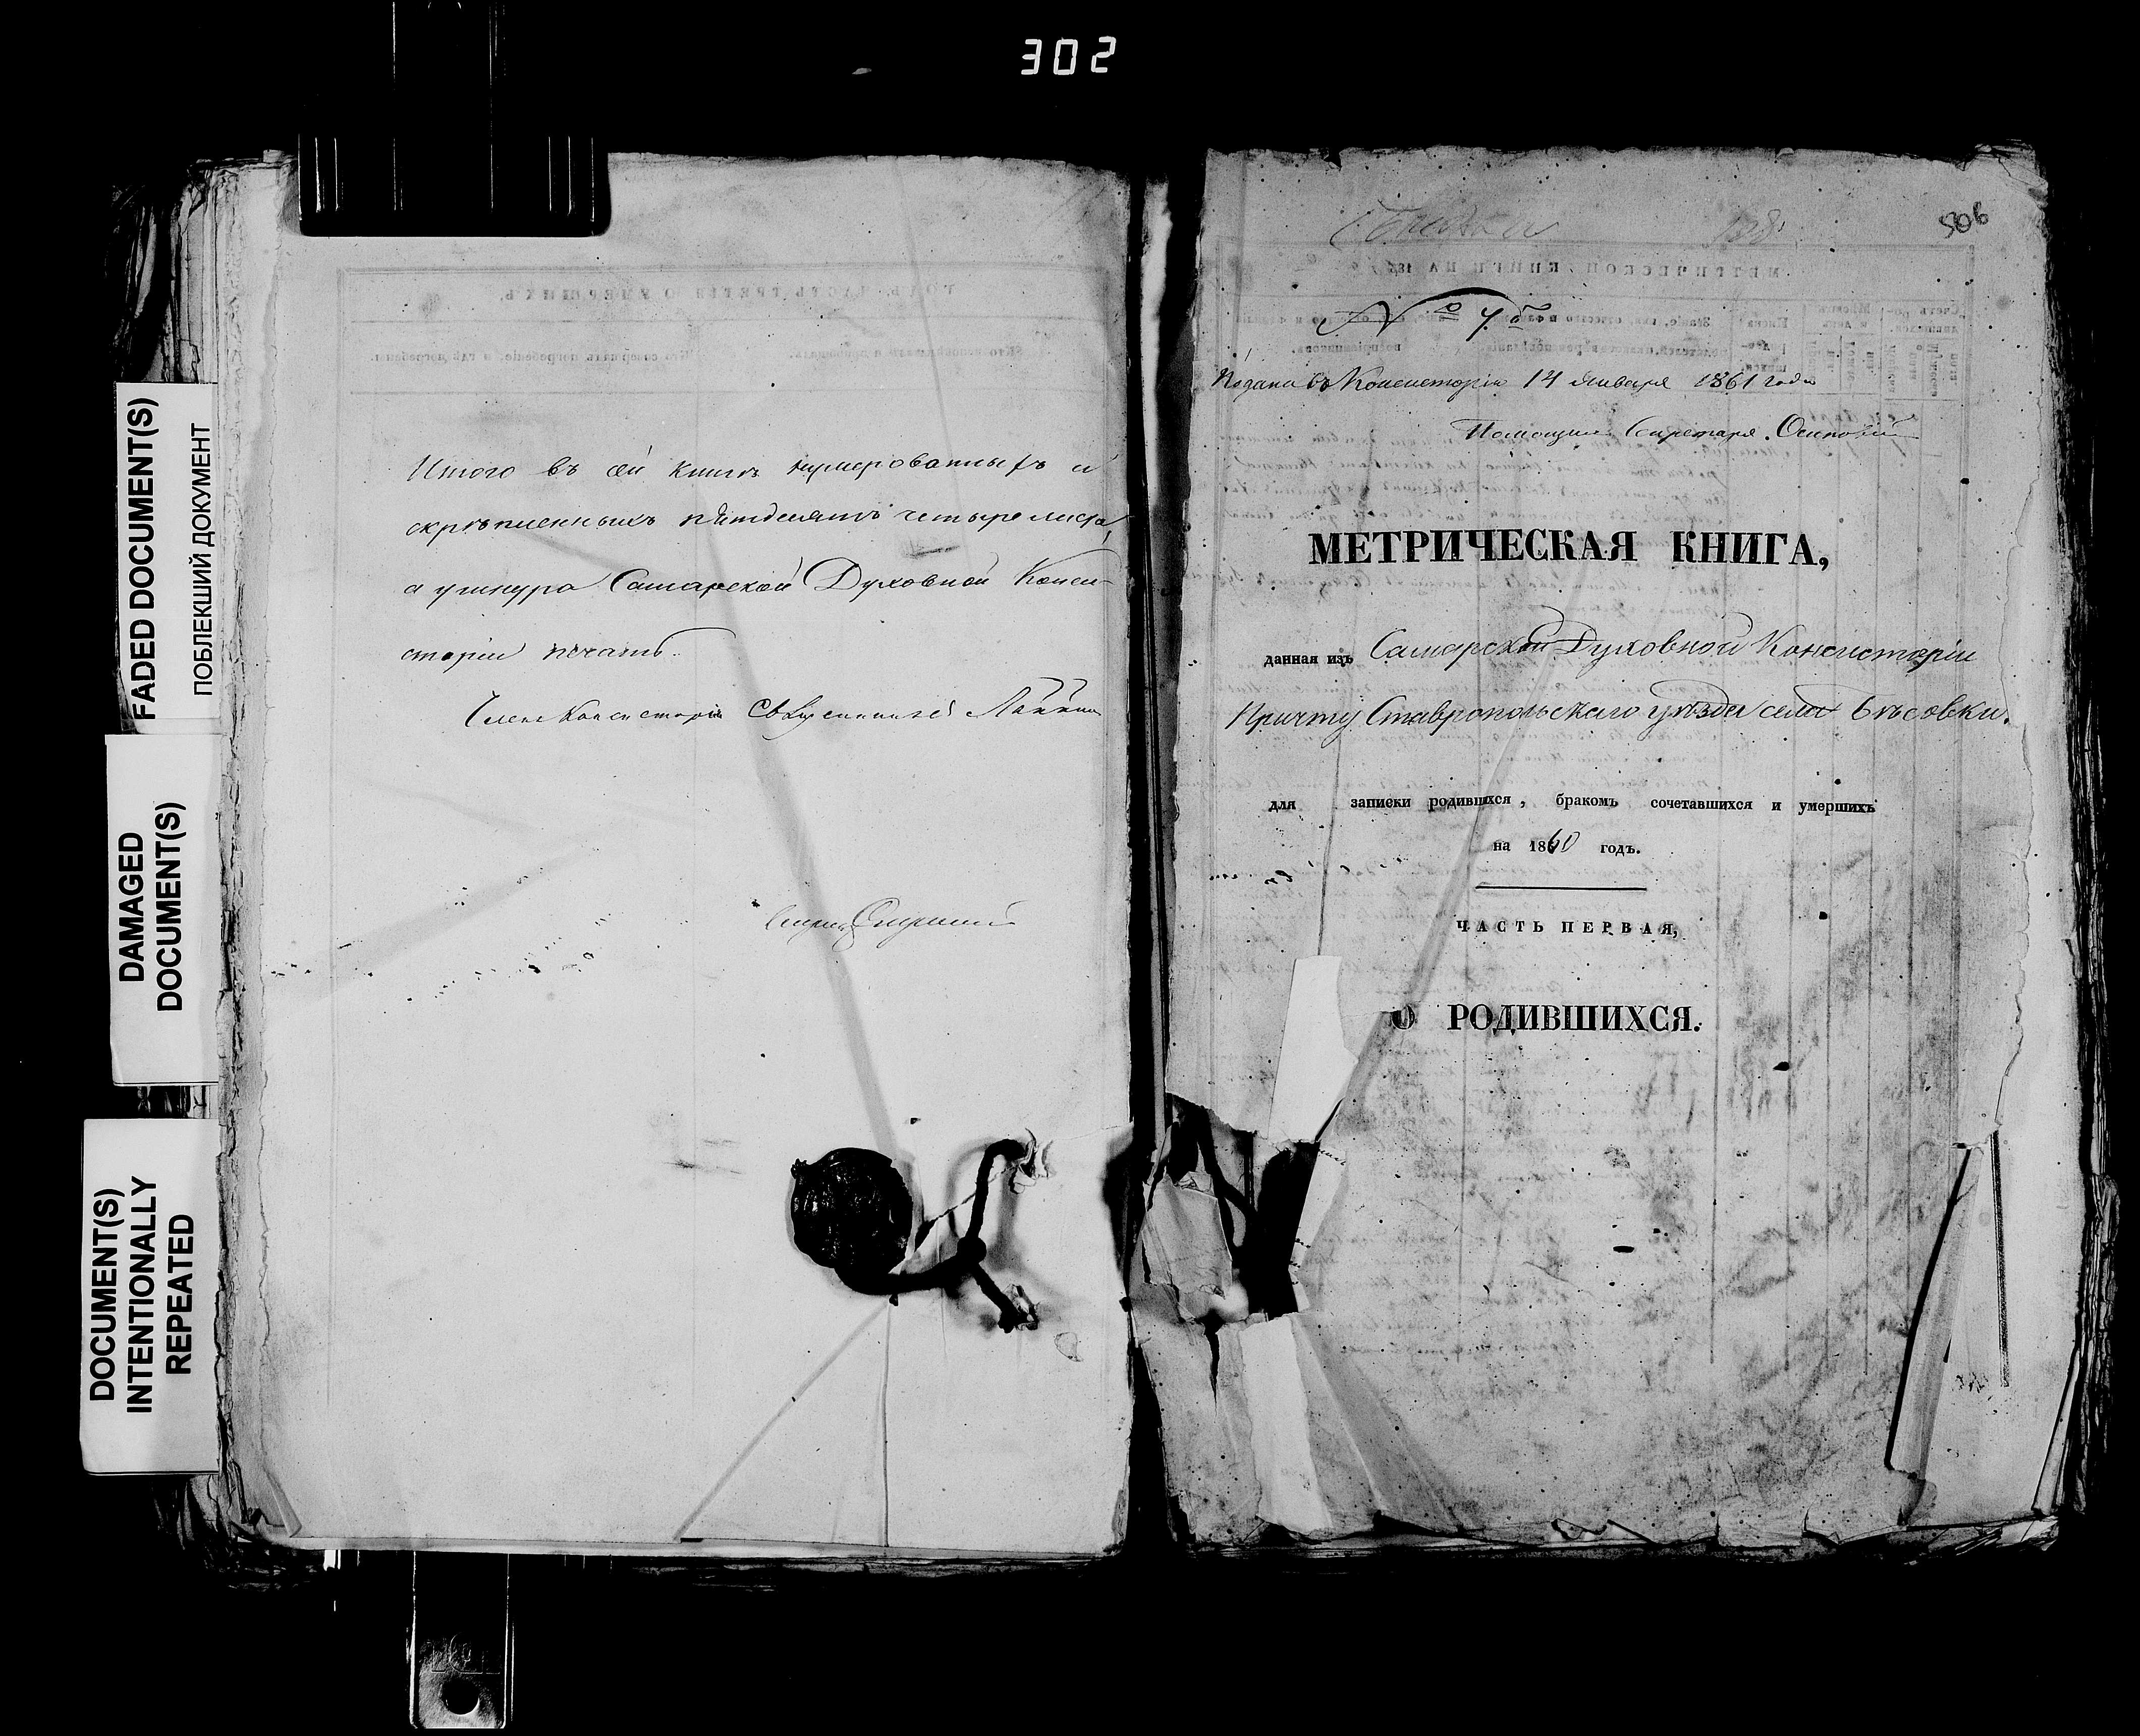 302
FADED DOCUMENT(S)
ПОБЛЕКШИЙ ДОКУМЕНТ
DAMAGED
DOCUMENT(S)
DOCUMENT(S)
INTENTIONALLY
REPEATED
Итого въ сей книгѣ нумерованныхъ и
скрѣпленныхъ пятдесятъ четыре листа,
а у шнура Самарской Духовной Конси-
сторіи печать.
Членъ Консисторіи Священникъ
506
№ 7й
Подана въ Консисторію 14 Января 1861 года
Секретаря
МЕТРИЧЕСКАЯ КНИГА,
данная изъ Самарской Духовной Консисторіи
Причту Ставропольскаго уѣзда села Бѣсовки.
для записки родившихся, бракомъ сочетавшихся и умершихъ
на 1860 годъ.
ЧАСТЬ ПЕРВАЯ,
О РОДИВШИХСЯ.